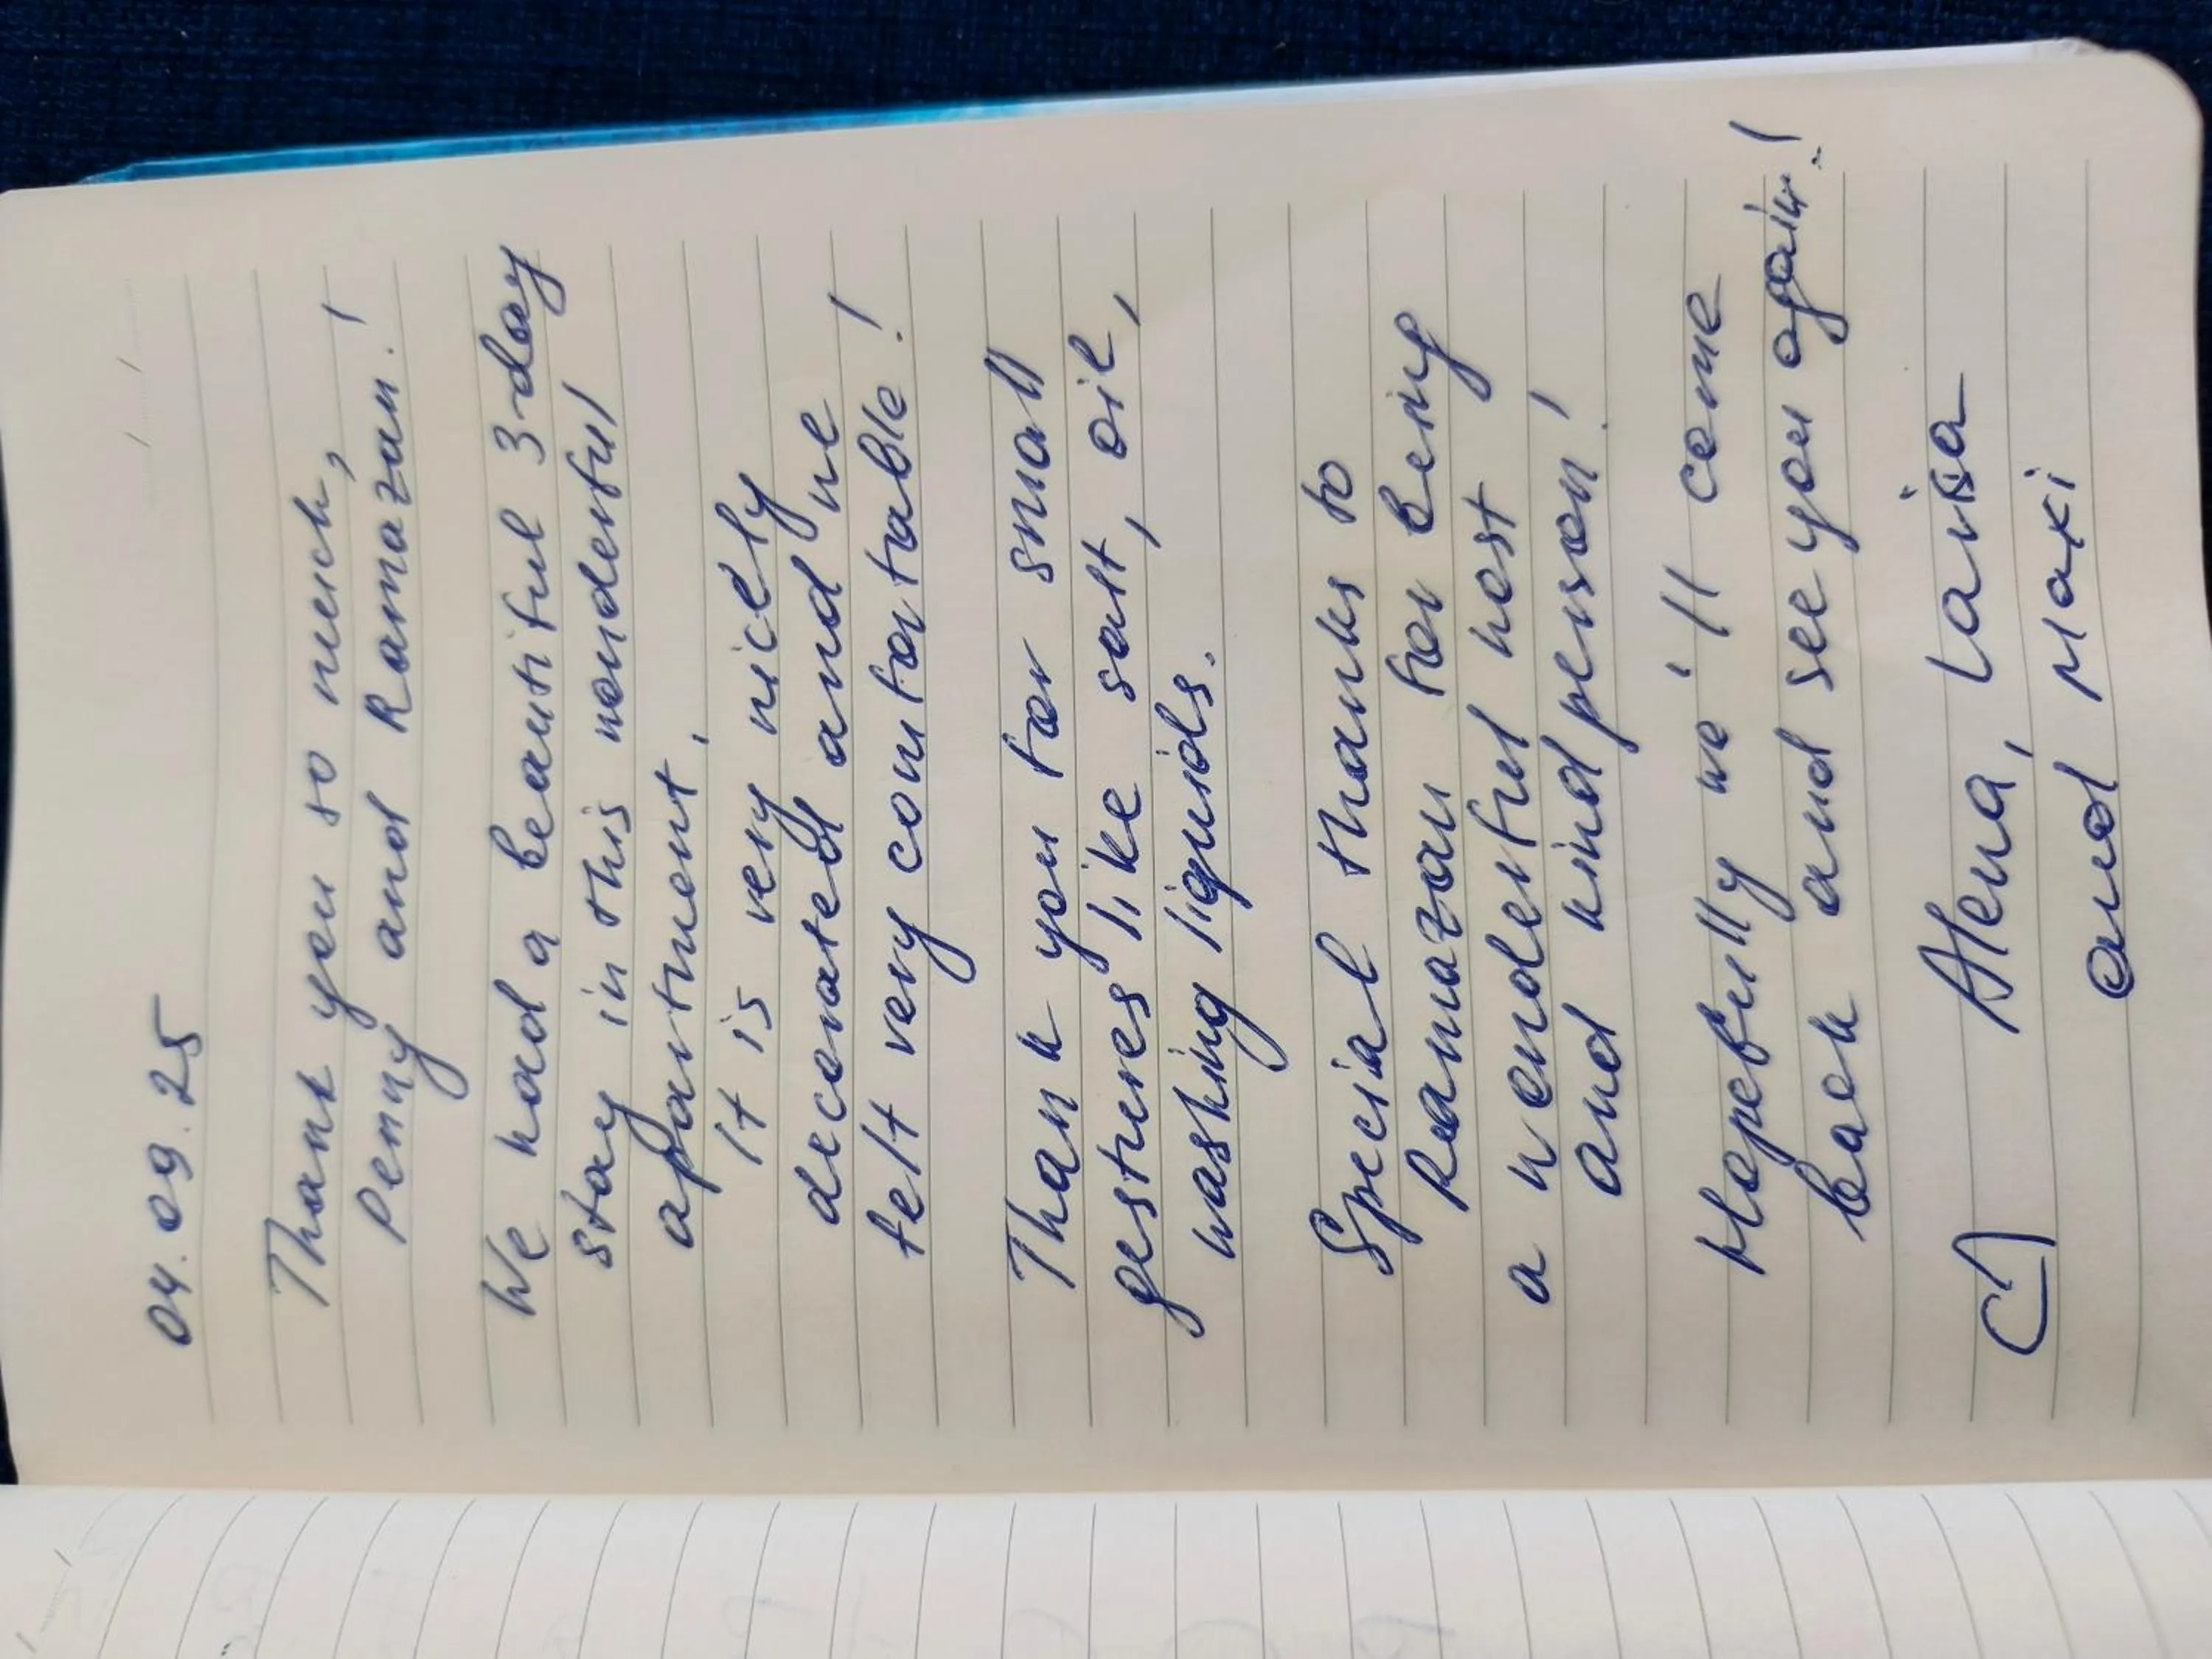 04.09.25
Thank you so much,
Penny and Ramazan!
We had a beautiful 3-day
stay in this wonderful
apartment.
It is very nicely
decorated and we
felt very comfortable!
Thank you for small
gestures like salt, oil,
washing liquids.
Special thanks to
Ramazan for being
a wonderful host
and kind person!
Hopefully we'll come
back and see you again!
Alena,
and Maxi